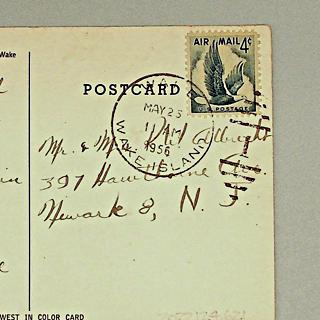 Wake
AIR MAIL 4¢
U.S. POSTAGE
POSTCARD
WAKE
MAY 23
11 AM
1956
WAKE ISLAND
Mr. & Mrs. Albright
in 397 Hawthorne Ave
Newark 8, N. J.
e
WEST IN COLOR CARD